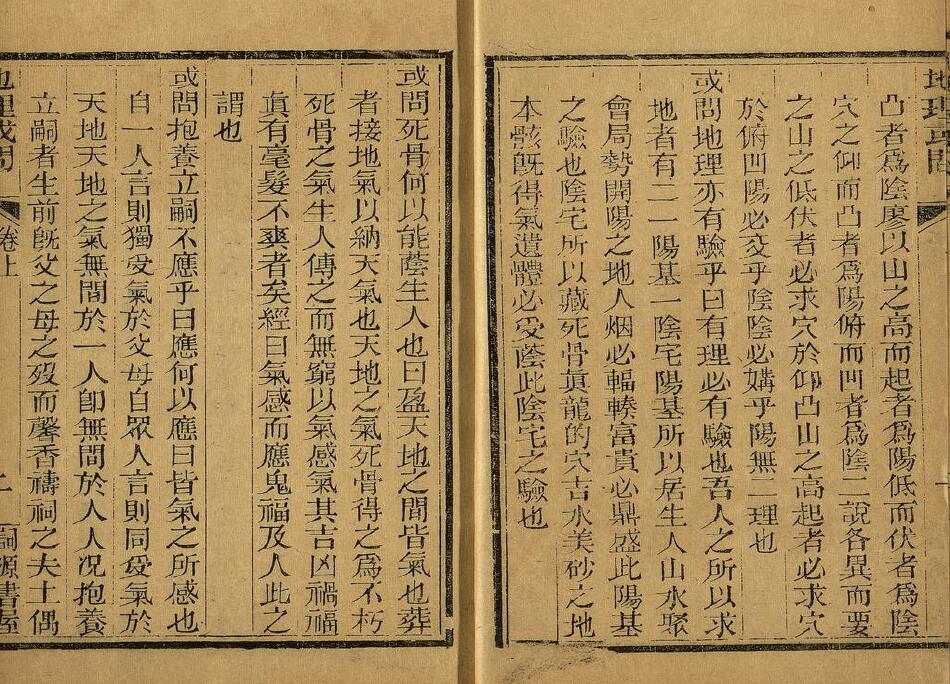 地理或問
凸者爲陰廖以山之高而起者爲陽低而伏者爲陰
穴之仰而凸者爲陽俯而凹者爲陰二說各異而要
之山之低伏者必求穴於仰凸山之高起者必求穴
於俯凹陽必交乎陰陰必媾乎陽無二理也
或問地理亦有驗乎曰有理必有驗也吾人之所以求
地者有二一陽基一陰宅陽基所以居生人山水聚
會局勢開陽之地人烟必輻輳富貴必鼎盛此陽基
之驗也陰宅所以藏死骨眞龍的穴吉水美砂之地
本骸旣得氣遺體必受蔭此陰宅之驗也
或問死骨何以能蔭生人也曰盈天地之間皆氣也葬
者接地氣以納天氣也天地之氣死骨得之爲不朽
死骨之氣生人傳之而無窮以氣感氣其吉凶禍福
眞有毫髮不爽者矣經曰氣感而應鬼福及人此之
謂也
或問抱養立嗣不應乎曰應何以應曰皆氣之所感也
自一人言則獨受氣於父母自眾人言則同受氣於
天地天地之氣無間於一人卽無間於人人况抱養
立嗣者生前旣父之母之歿而馨香禱祠之夫土偶
地理或問 卷上
源書屋